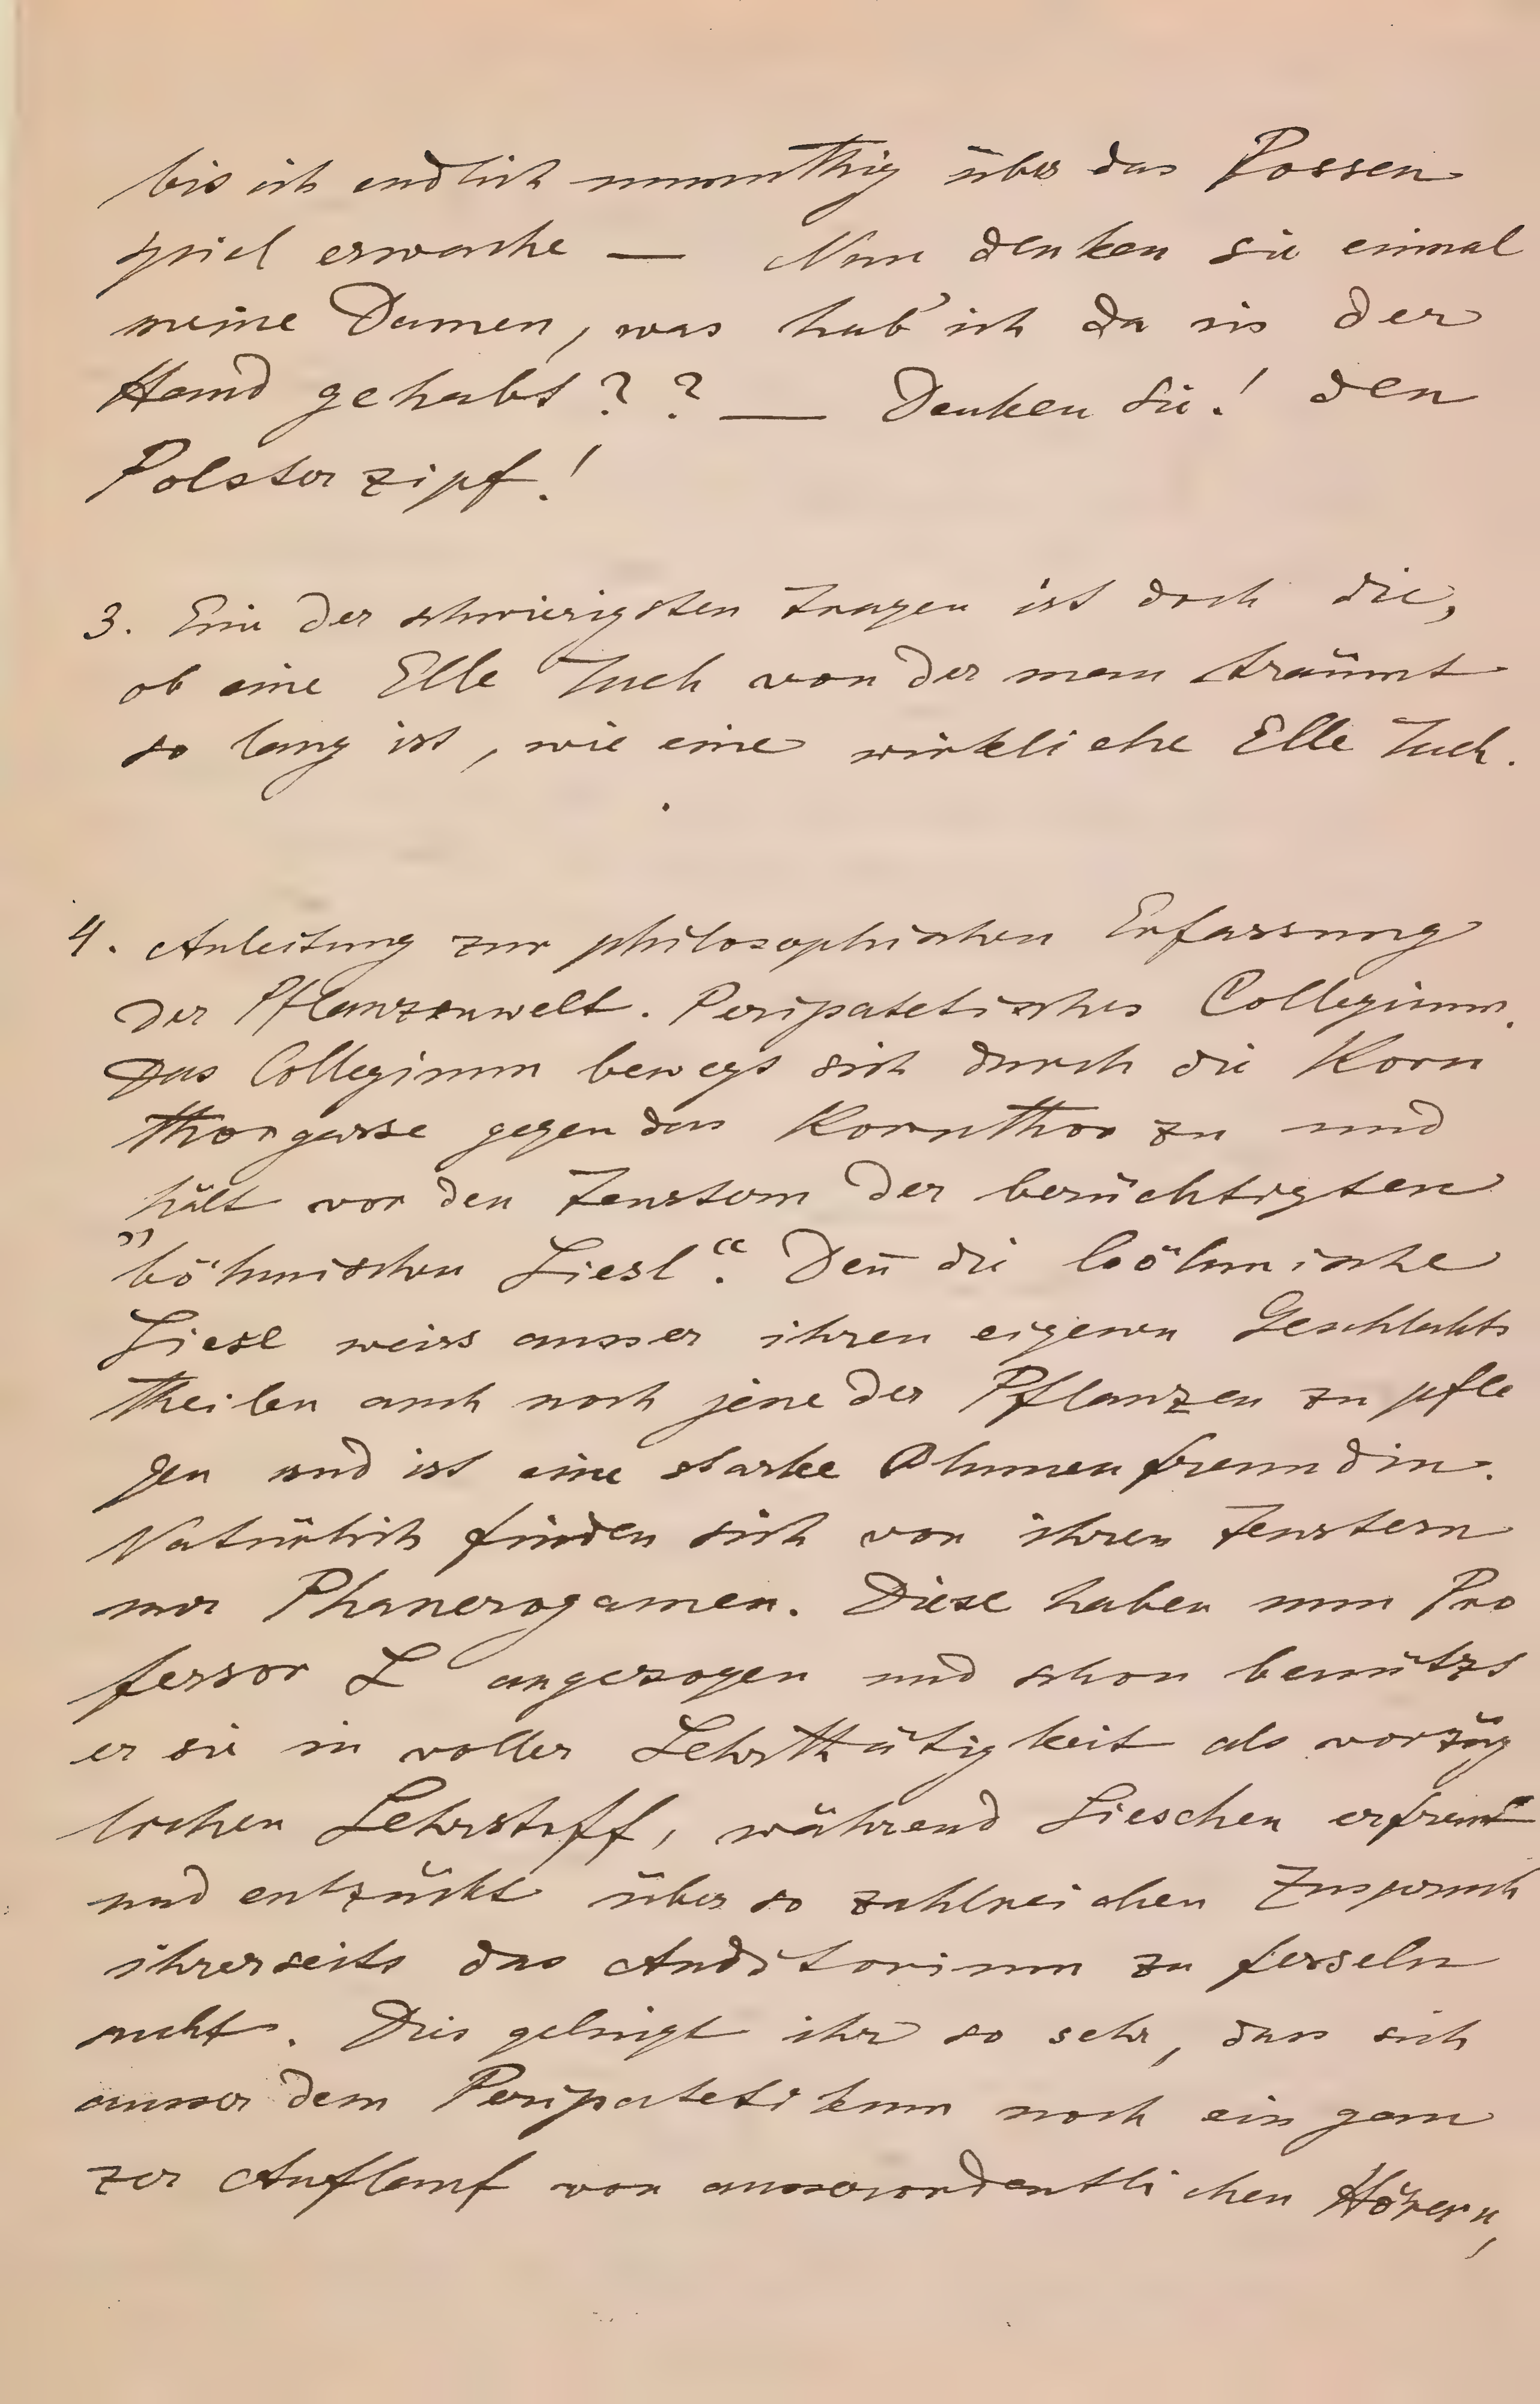 bis ich endlich unmuthig über das Possen
spiel erwache — Nun denken sie einmal
meine Damen, was hab' ich da in der
Hand gehabt?? — Denken Sie! den
Polsterzipf!
3. Eine der schwierigsten Fragen ist doch die,
ob eine Elle Tuch von der man träumt
so lang ist, wie eine wirkliche Elle Tuch.
4. Anleitung zur philosophischen Erfassung
der Pflanzenwelt. Peripatetisches Collegium.
Das Collegium bewegt sich durch die Korn
thorgasse gegen das Kornthor zu und
hält vor den Fenstern der berüchtigten
„böhmischen Liesl“. Den̄ die böhmische
Liesl weiss ausser ihren eigenen Geschlechts
theilen auch noch jene der Pflanzen zu pfle
gen und ist eine starke Blumenfreundin.
Natürlich finden sich vor ihren Fenstern
nur Phanerogamen. Diese haben nun Pro
fessor L angezogen und schon benützt
er sie in voller Lehrthätigkeit als vorzüg
lichen Lehrstoff, während Lieschen erfreut
und entzückt über so zahlreichen Zuspruch
ihrerseits das Auditorium zu fesseln
sucht. Dies gelingt ihr so sehr, dass sich
ausser dem Peripatetikum noch ein gan
zer Auflauf von ausserordentlichen Hörern,